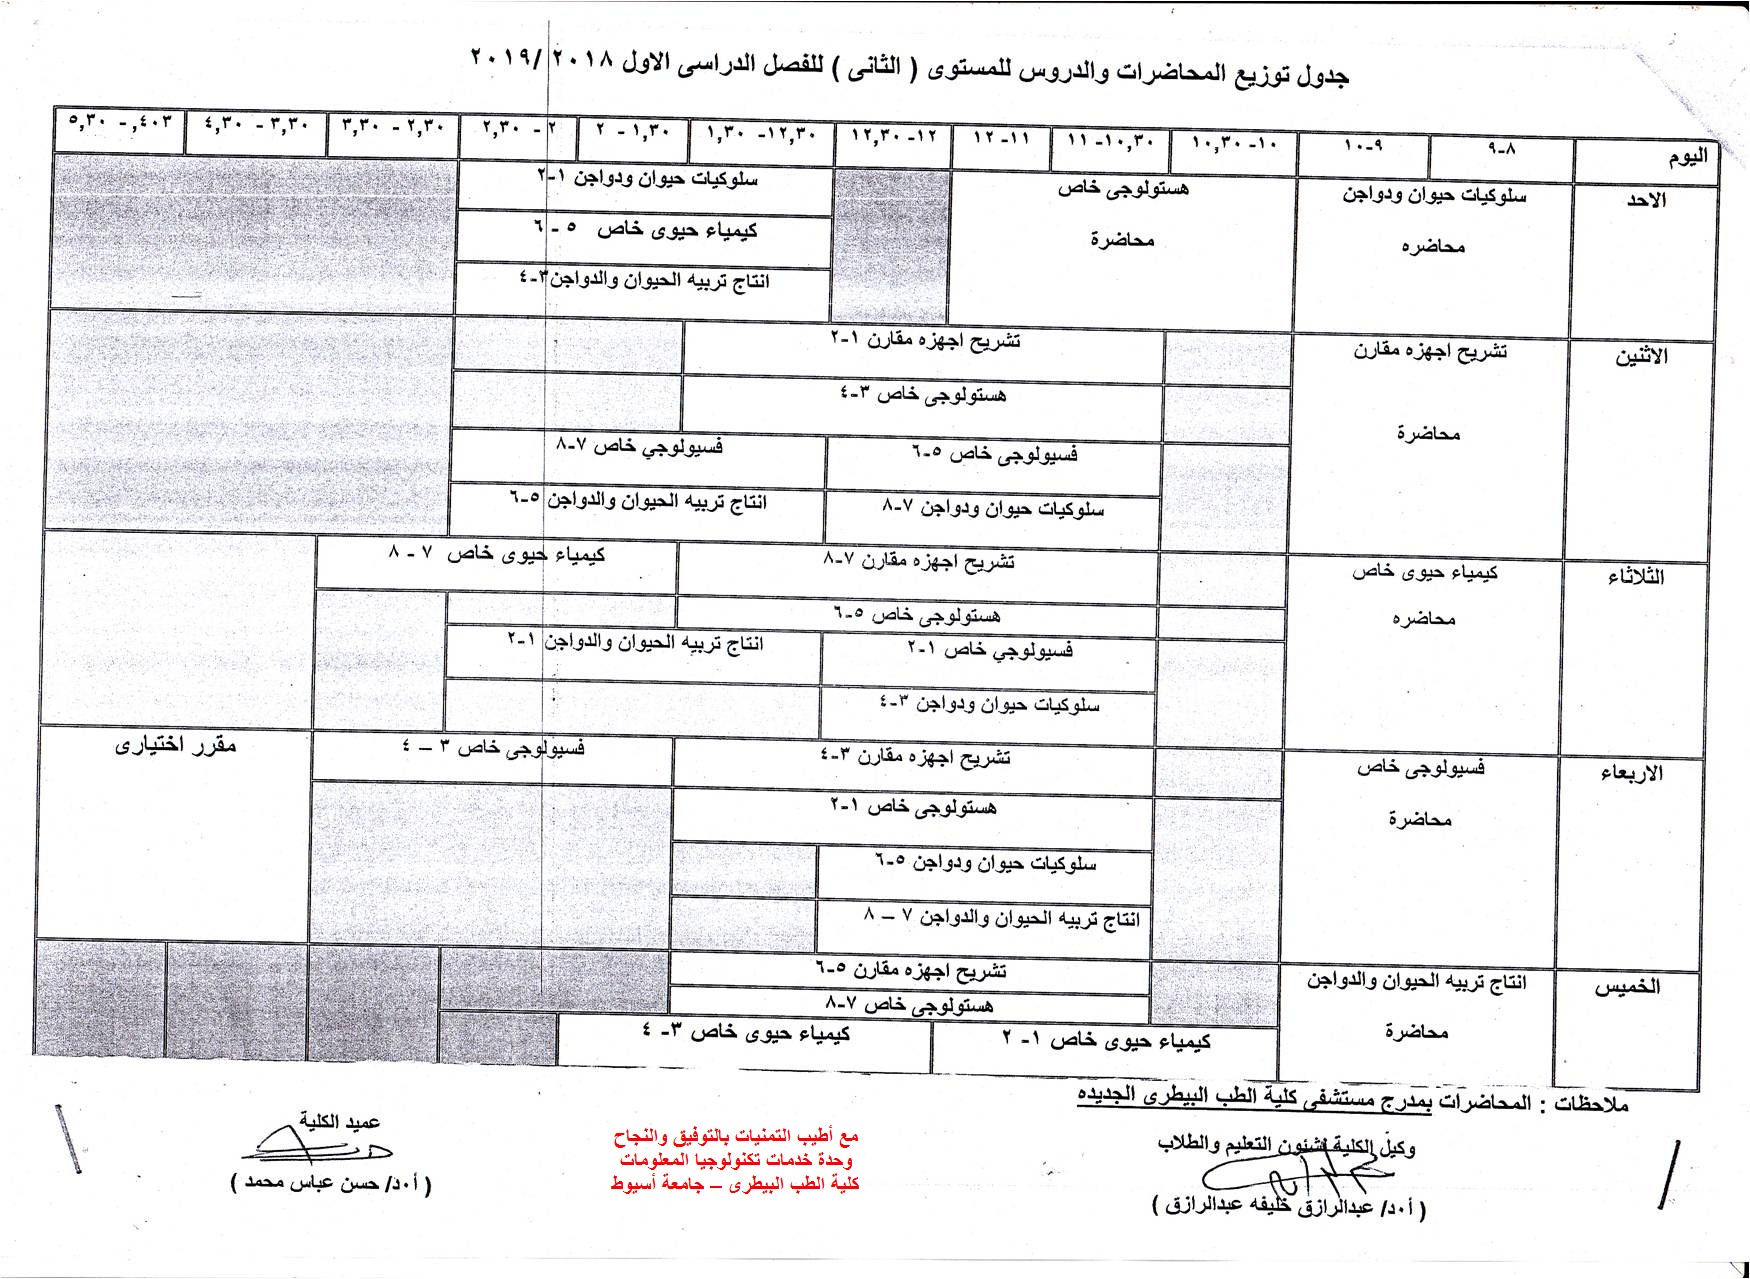 جدول توزيع المحاضرات والدروس للمستوى ( الثانى ) للفصل الدراسى الاول ٢٠١٨ /٢٠١٩
اليوم ٨-٩ ٩-١٠ ١٠- ١٠,٣٠ ١٠,٣٠-١١ ١١- ١٢ ١٢- ١٢,٣٠ ١٢,٣٠- ١,٣٠ ١,٣٠- ٢ ٢- ٢,٣٠ ٢,٣٠- ٣,٣٠ ٣,٣٠- ٤,٣٠ ٤٠٣,- ٥,٣٠
الاحد
سلوكيات حيوان ودواجن
محاضره
هستولوجى خاص
محاضرة
سلوكيات حيوان ودواجن ١-٢
كيمياء حيوى خاص ٥ - ٦
انتاج تربيه الحيوان والدواجن ٣-٤
الاثنين
تشريح اجهزه مقارن
محاضرة
تشريح اجهزه مقارن ١-٢
هستولوجى خاص ٣-٤
فسيولوجى خاص ٥-٦
فسيولوجي خاص ٧-٨
سلوكيات حيوان ودواجن ٧-٨
انتاج تربيه الحيوان والدواجن ٥-٦
الثلاثاء
كيمياء حيوى خاص
محاضره
تشريح اجهزه مقارن ٧-٨
كيمياء حيوى خاص ٧ - ٨
هستولوجى خاص ٥-٦
فسيولوجي خاص ١-٢
انتاج تربيه الحيوان والدواجن ١-٢
سلوكيات حيوان ودواجن ٣-٤
الاربعاء
فسيولوجى خاص
محاضرة
تشريح اجهزه مقارن ٣-٤
فسيولوجى خاص ٣ – ٤
مقرر اختيارى
هستولوجى خاص ١-٢
سلوكيات حيوان ودواجن ٥-٦
انتاج تربيه الحيوان والدواجن ٧ – ٨
الخميس
انتاج تربيه الحيوان والدواجن
محاضرة
تشريح اجهزه مقارن ٥-٦
هستولوجى خاص ٧-٨
كيمياء حيوى خاص ١- ٢
كيمياء حيوى خاص ٣- ٤
ملاحظات : المحاضرات بمدرج مستشفى كلية الطب البيطرى الجديده
وكيل الكلية لشئون التعليم والطلاب
( أ.د/ عبدالرازق خليفه عبدالرازق )
مع أطيب التمنيات بالتوفيق والنجاح
وحدة خدمات تكنولوجيا المعلومات
كلية الطب البيطرى – جامعة أسيوط
عميد الكلية
( أ.د/ حسن عباس محمد )